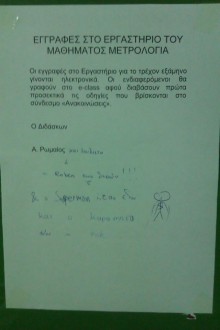 ΕΓΓΡΑΦΕΣ ΣΤΟ ΕΡΓΑΣΤΗΡΙΟ ΤΟΥ
ΜΑΘΗΜΑΤΟΣ ΜΕΤΡΟΛΟΓΙΑ
Οι εγγραφές στο Εργαστήριο για το τρέχον εξάμηνο
γίνονται ηλεκτρονικά. Οι ενδιαφερόμενοι θα
γραφούν στο e-class αφού διαβάσουν πρώτα
προσεκτικά τις οδηγίες που βρίσκονται στο
σύνδεσμο «Ανακοινώσεις».
Ο Διδάσκων
Α. Ρωμαίος
Superman